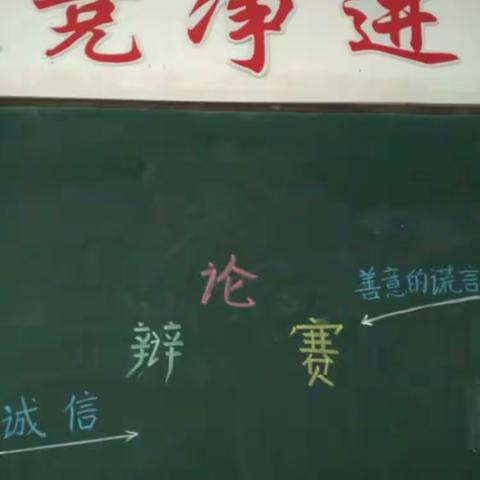 竞净进
论
善意的谎言
辩 赛
诚信